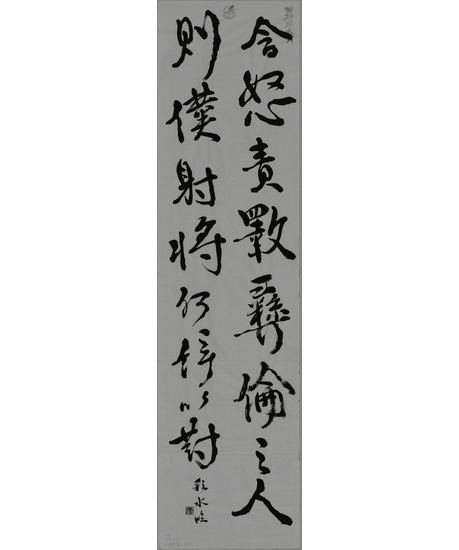 含怒責斁彝倫之人
則僕射將何辭以對
水臨